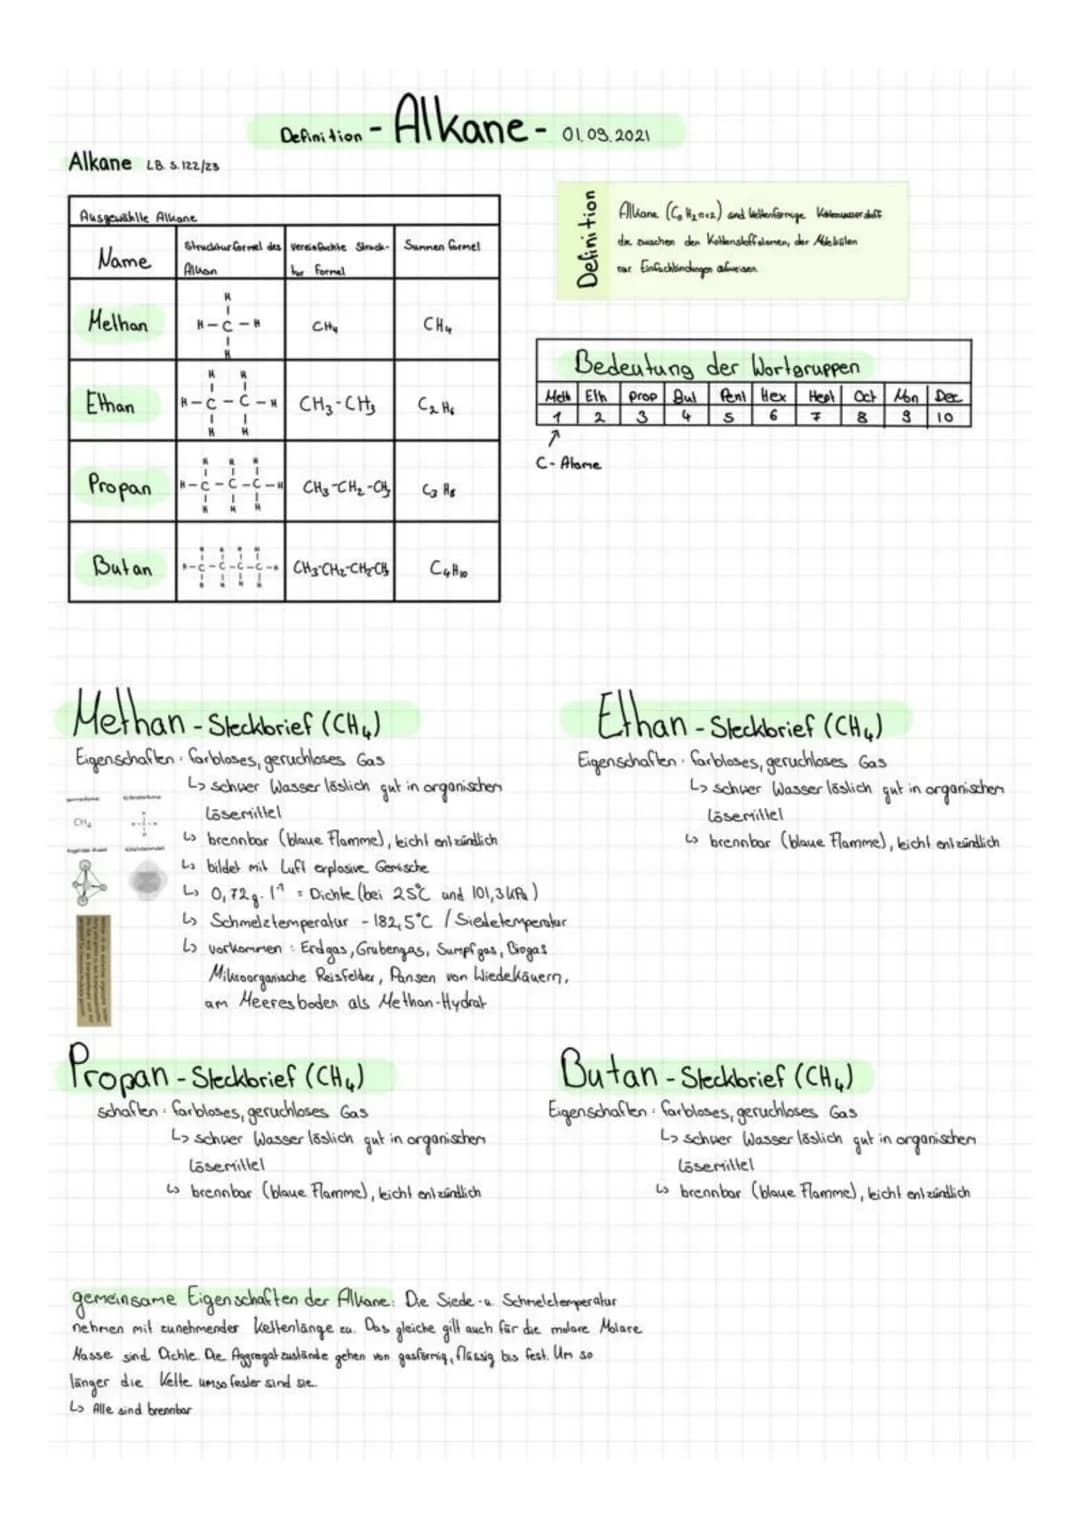 Definition - Alkane - 01.09.2021
Alkane LB. S. 122/23
Ausgewählte Alkane
Name Strucktur formel des Alkan Vereinfachte Struck- tur Formel Summen formel
Methan CH4 CH4
H
H-C-H
H
Ethan CH3-CH3 C2H6
H H
H-C-C-H
H H
Propan CH3-CH2-CH3 C3H8
H H H
H-C-C-C-H
H H H
Butan CH3-CH2-CH2-CH3 C4H10
H H H H
H-C-C-C-C-H
H H H H
Definition
Alkane (CnH2n+2) sind kettenförmige Kohlenwasserstoffe
die zwischen den Kohlenstoffatomen, der Moleküle
nur Einfachbindungen aufweisen.
Bedeutung der Wortgruppen
Meth Eth Prop But Pent Hex Hept Oct Non Dec
1 2 3 4 5 6 7 8 9 10
C-Atome
Methan - Steckbrief (CH4)
Eigenschaften: farbloses, geruchloses Gas
↳ schwer Wasser löslich gut in organischen
Lösemittel
↳ brennbar (blaue Flamme), leicht entzündlich
↳ bildet mit Luft explosive Gemische
↳ 0,72g·l⁻¹ = Dichte (bei 25°C und 101,3kPa)
↳ Schmelztemperatur -182,5°C / Siedetemperatur
↳ vorkommen: Erdgas, Grubengas, Sumpfgas, Biogas
Mikroorganische Reisfelder, Pansen von Wiedekäuern,
am Meeresboden als Methan-Hydrat
CH4
Ethan - Steckbrief (CH4)
Eigenschaften: farbloses, geruchloses Gas
↳ schwer Wasser löslich gut in organischen
Lösemittel
↳ brennbar (blaue Flamme), leicht entzündlich
Propan - Steckbrief (CH4)
schaften: farbloses, geruchloses Gas
↳ schwer Wasser löslich gut in organischen
Lösemittel
↳ brennbar (blaue Flamme), leicht entzündlich
Butan - Steckbrief (CH4)
Eigenschaften: farbloses, geruchloses Gas
↳ schwer Wasser löslich gut in organischen
Lösemittel
↳ brennbar (blaue Flamme), leicht entzündlich
gemeinsame Eigenschaften der Alkane: Die Siede-u. Schmelztemperatur
nehmen mit zunehmender Kettenlänge zu. Das gleiche gilt auch für die molare Molare
Masse sind Dichte. Die Aggregatzustände gehen von gasförmig, flüssig bis fest. Um so
länger die Kette umso fester sind sie.
↳ Alle sind brennbar